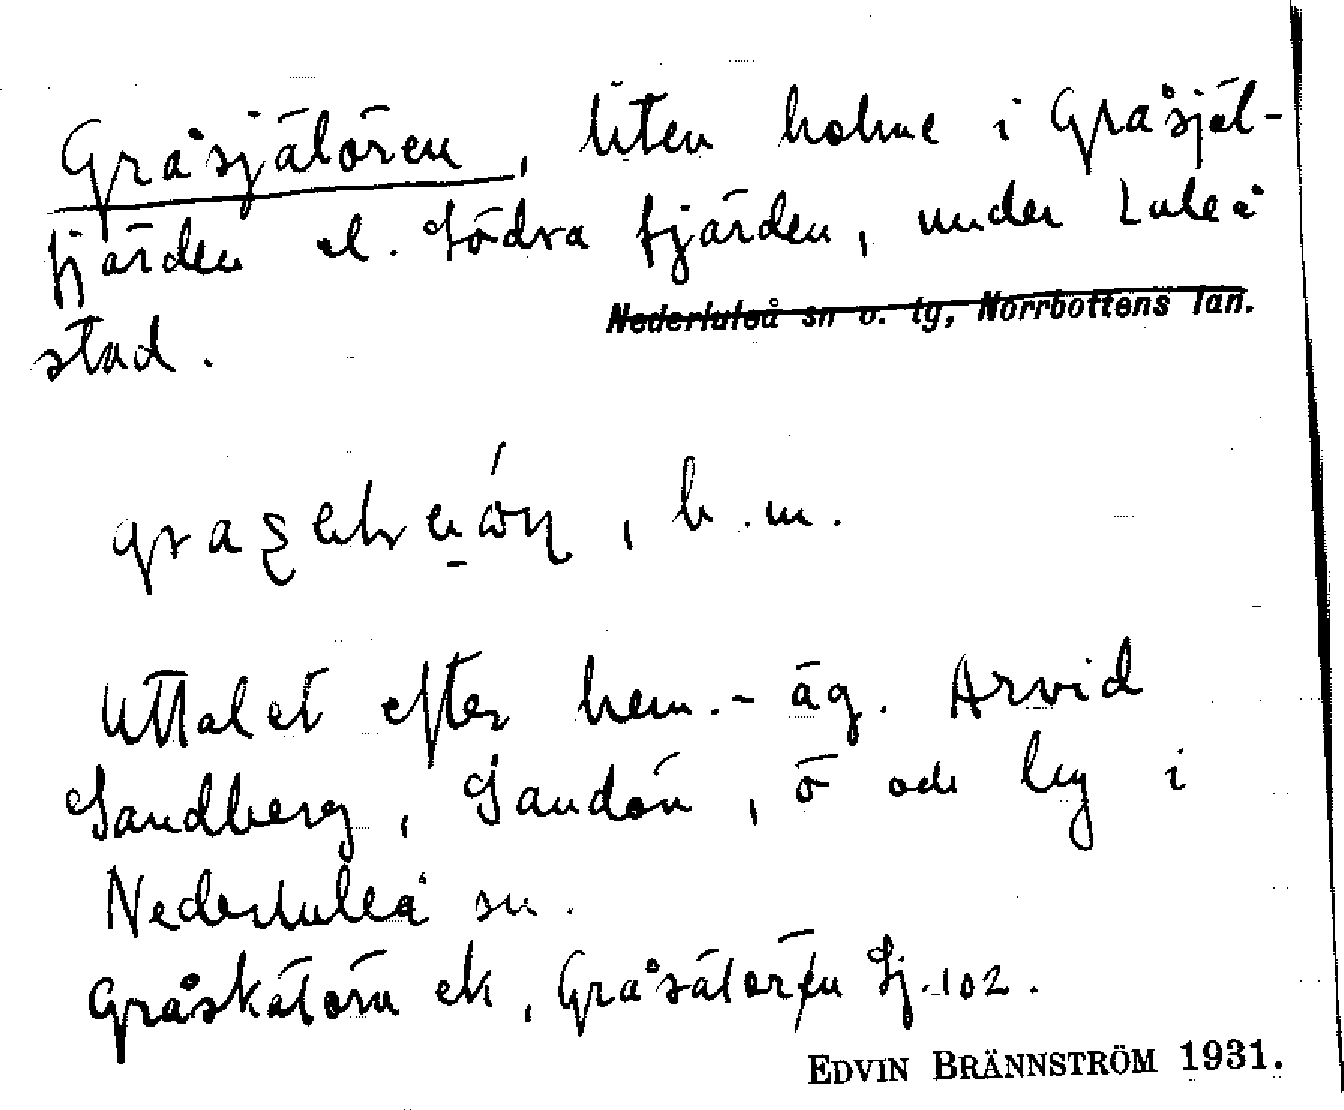 Gråsjälören, liten holme i Gråsjäl-
fjärden el. Södra fjärden, under Luleå
stad.
Nederluleå sn o. tg, Norrbottens län.
, b. m.
Uttalet efter hem.-äg. Arvid
Sandberg, Sandön, ö och by i
Nederluleå sn.
Gråskätörn ek, Gråsälören Sj. 102.
EDVIN BRÄNNSTRÖM 1931.